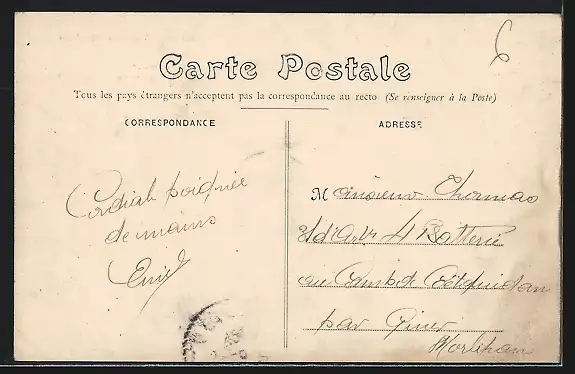 6
Carte Postale
Tous les pays étrangers n'acceptent pas la correspondance au recto (Se renseigner à la Poste)
CORRESPONDANCE
ADRESSE
Cordiale poignée
de mains
Emile
Monsieur Thomas
4 Batterie
au Camp de Coëtquidan
par Guer
Morbihan